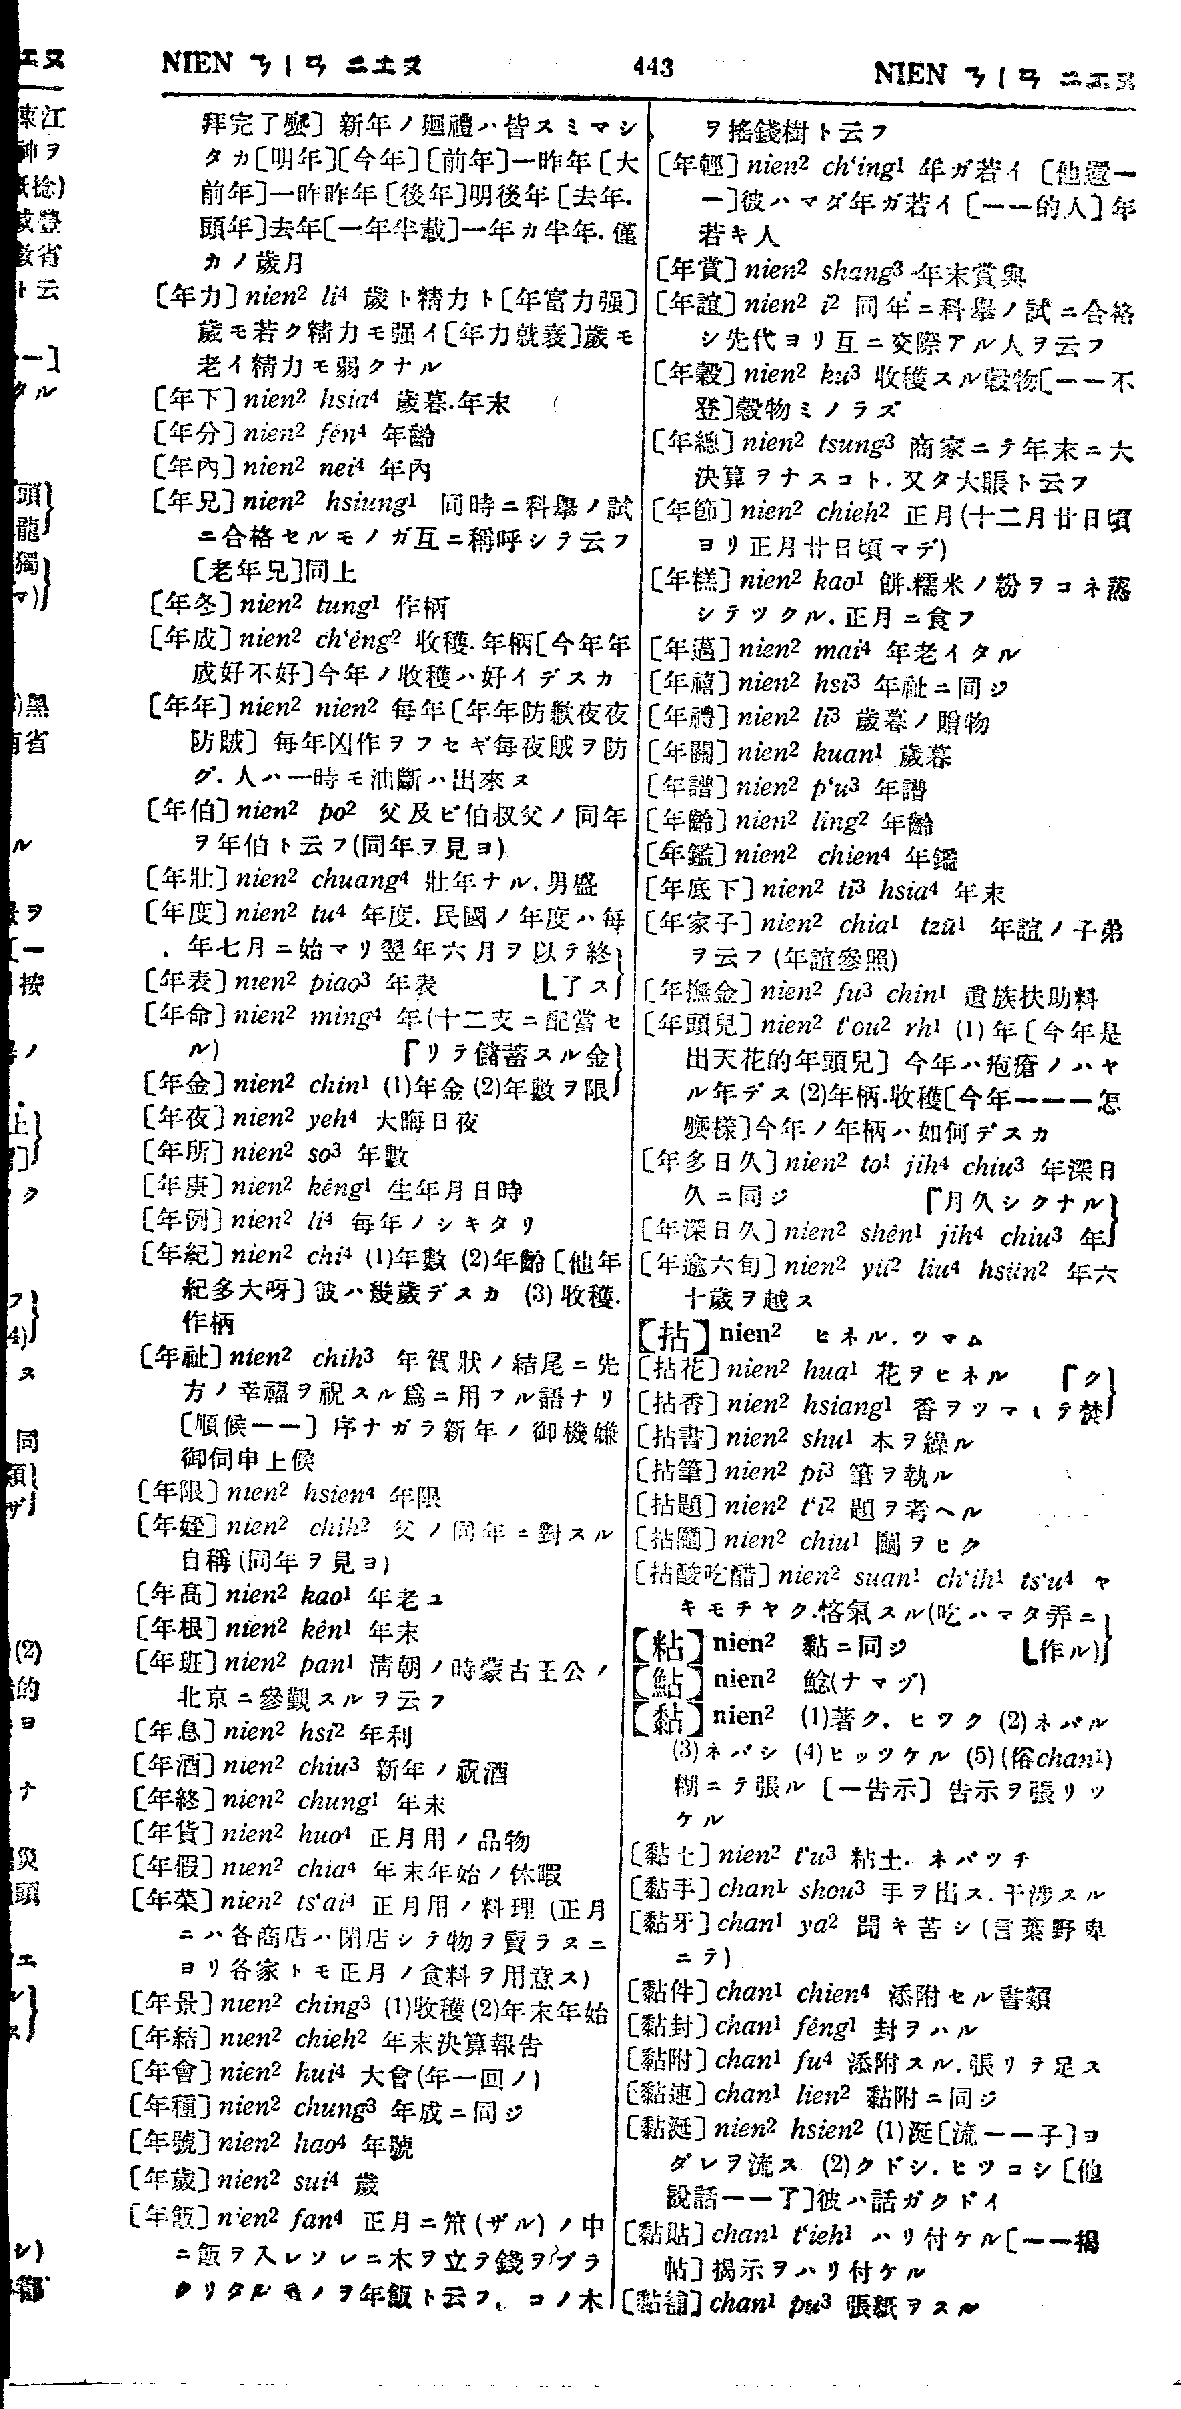 NIEN ㄋㄧㄢ ニエヌ 443 NIEN ㄋㄧㄢ ニエヌ
拜完了麼〕新年ノ廻禮ハ皆スミマシ
タカ〔明年〕〔今年〕〔前年〕一昨年〔大
前年〕一昨昨年〔後年〕明後年〔去年.
頭年〕去年〔一年半載〕一年カ半年.僅
カノ歲月
〔年力〕nien² li⁴ 歲ト精力ト〔年富力强〕
歲モ若ク精力モ强イ〔年力就衰〕歲モ
老イ精力モ弱クナル
〔年下〕nien² hsia⁴ 歲暮.年末
〔年分〕nien² fên⁴ 年齡
〔年內〕nien² nei⁴ 年內
〔年兄〕nien² hsiung¹ 同時ニ科擧ノ試
ニ合格セルモノガ互ニ稱呼シテ云フ
〔老年兄〕同上
〔年冬〕nien² tung¹ 作柄
〔年成〕nien² ch'êng² 收穫.年柄〔今年年
成好不好〕今年ノ收穫ハ好イデスカ
〔年年〕nien² nien² 每年〔年年防歉夜夜
防賊〕每年凶作ヲフセギ每夜賊ヲ防
グ.人ハ一時モ油斷ハ出來ヌ
〔年伯〕nien² po² 父及ビ伯叔父ノ同年
ヲ年伯ト云フ(同年ヲ見ヨ)
〔年壯〕nien² chuang⁴ 壯年ナル.男盛
〔年度〕nien² tu⁴ 年度.民國ノ年度ハ每
年七月ニ始マリ翌年六月ヲ以テ終
〔年表〕nien² piao³ 年表 〔了ス
〔年命〕nien² ming⁴ 年(十二支ニ配當セ
ル) 「リテ儲蓄スル金
〔年金〕nien² chin¹ (1)年金 (2)年數ヲ限
〔年夜〕nien² yeh⁴ 大晦日夜
〔年所〕nien² so³ 年數
〔年庚〕nien² kêng¹ 生年月日時
〔年例〕nien² li⁴ 每年ノシキタリ
〔年紀〕nien² chi⁴ (1)年數 (2)年齡〔他年
紀多大呀〕彼ハ幾歲デスカ (3)收穫.
作柄
〔年祉〕nien² chih³ 年賀狀ノ結尾ニ先
方ノ幸福ヲ祝スル爲ニ用フル語ナリ
〔順候一一〕序ナガラ新年ノ御機嫌
御伺申上候
〔年限〕nien² hsien⁴ 年限
〔年姪〕nien² chih² 父ノ同年ニ對スル
自稱(同年ヲ見ヨ)
〔年高〕nien² kao¹ 年老ユ
〔年根〕nien² kên¹ 年末
〔年班〕nien² pan¹ 淸朝ノ時蒙古王公ノ
北京ニ參觀スルヲ云フ
〔年息〕nien² hsi² 年利
〔年酒〕nien² chiu³ 新年ノ祝酒
〔年終〕nien² chung¹ 年末
〔年貨〕nien² huo⁴ 正月用ノ品物
〔年假〕nien² chia⁴ 年末年始ノ休暇
〔年菜〕nien² ts'ai⁴ 正月用ノ料理(正月
ニハ各商店ハ閉店シテ物ヲ賣ラヌニ
ヨリ各家トモ正月ノ食料ヲ用意ス)
〔年景〕nien² ching³ (1)收穫 (2)年末年始
〔年結〕nien² chieh² 年末決算報告
〔年會〕nien² hui⁴ 大會(年一回ノ)
〔年種〕nien² chung³ 年成ニ同ジ
〔年號〕nien² hao⁴ 年號
〔年歲〕nien² sui⁴ 歲
〔年飯〕nien² fan⁴ 正月ニ笊(ザル)ノ中
ニ飯ヲ入レソレニ木ヲ立テ錢ヲブラ
クリタルモノヲ年飯ト云フ. コノ木
ヲ搖錢樹ト云フ
〔年輕〕nien² ch'ing¹ 年ガ若イ〔他還一
一〕彼ハマダ年ガ若イ〔一一的人〕年
若キ人
〔年賞〕nien² shang³ 年末賞與
〔年誼〕nien² i² 同年ニ科擧ノ試ニ合格
シ先代ヨリ互ニ交際アル人ヲ云フ
〔年穀〕nien² ku³ 收穫スル穀物〔一一不
登〕穀物ミノラズ
〔年總〕nien² tsung³ 商家ニテ年末ニ大
決算ヲナスコト.又タ大賬ト云フ
〔年節〕nien² chieh² 正月(十二月廿日頃
ヨリ正月廿日頃マデ)
〔年糕〕nien² kao¹ 餅.糯米ノ粉ヲコネ蒸
シテツクル.正月ニ食フ
〔年邁〕nien² mai⁴ 年老イタル
〔年禧〕nien² hsi³ 年祉ニ同ジ
〔年禮〕nien² li³ 歲暮ノ贈物
〔年關〕nien² kuan¹ 歲暮
〔年譜〕nien² p'u³ 年譜
〔年齡〕nien² ling² 年齡
〔年鑑〕nien² chien⁴ 年鑑
〔年底下〕nien² ti³ hsia⁴ 年末
〔年家子〕nien² chia¹ tzŭ¹ 年誼ノ子弟
ヲ云フ(年誼參照)
〔年撫金〕nien² fu³ chin¹ 遺族扶助料
〔年頭兒〕nien² t'ou² rh¹ (1)年〔今年是
出天花的年頭兒〕今年ハ疱瘡ノハヤ
ル年デス (2)年柄.收穫〔今年一一一怎
麼樣〕今年ノ年柄ハ如何デスカ
〔年多日久〕nien² to¹ jih⁴ chiu³ 年深日
久ニ同ジ 「月久シクナル
〔年深日久〕nien² shên¹ jih⁴ chiu³ 年
〔年逾六旬〕nien² yü² liu⁴ hsün² 年六
十歲ヲ越ス
【拈】nien² ヒネル.ツマム
〔拈花〕nien² hua¹ 花ヲヒネル 「ク
〔拈香〕nien² hsiang¹ 香ヲツマミテ焚
〔拈書〕nien² shu¹ 本ヲ繰ル
〔拈筆〕nien² pi³ 筆ヲ執ル
〔拈題〕nien² t'i² 題ヲ考ヘル
〔拈鬮〕nien² chiu¹ 鬮ヲヒク
〔拈酸吃醋〕nien² suan¹ ch'ih¹ ts'u⁴ ヤ
キモチヤク.悋氣スル(吃ハマタ弄ニ
【粘】nien² 黏ニ同ジ 〔作ル)
【鮎】nien² 鯰(ナマヅ)
【黏】nien² (1)著ク. ヒツク (2)ネバル
(3)ネバシ (4)ヒッツケル (5)(俗chan¹)
糊ニテ張ル〔一告示〕告示ヲ張リッ
ケル
〔黏土〕nien² t'u³ 粘土. ネバツチ
〔黏手〕chan¹ shou³ 手ヲ出ス.干涉スル
〔黏牙〕chan¹ ya² 聞キ苦シ(言葉野卑
ニテ)
〔黏件〕chan¹ chien⁴ 添附セル書類
〔黏封〕chan¹ fêng¹ 封ヲハル
〔黏附〕chan¹ fu⁴ 添附スル.張リテ足ス
〔黏連〕chan¹ lien² 黏附ニ同ジ
〔黏涎〕nien² hsien² (1)涎〔流一一子〕ヨ
ダレヲ流ス (2)クドシ.ヒツコシ〔他
說話一一了〕彼ハ話ガクドイ
〔黏貼〕chan¹ t'ieh¹ ハリ付ケル〔一一揭
帖〕揭示ヲハリ付ケル
〔黏舖〕chan¹ pu³ 張紙ヲスル